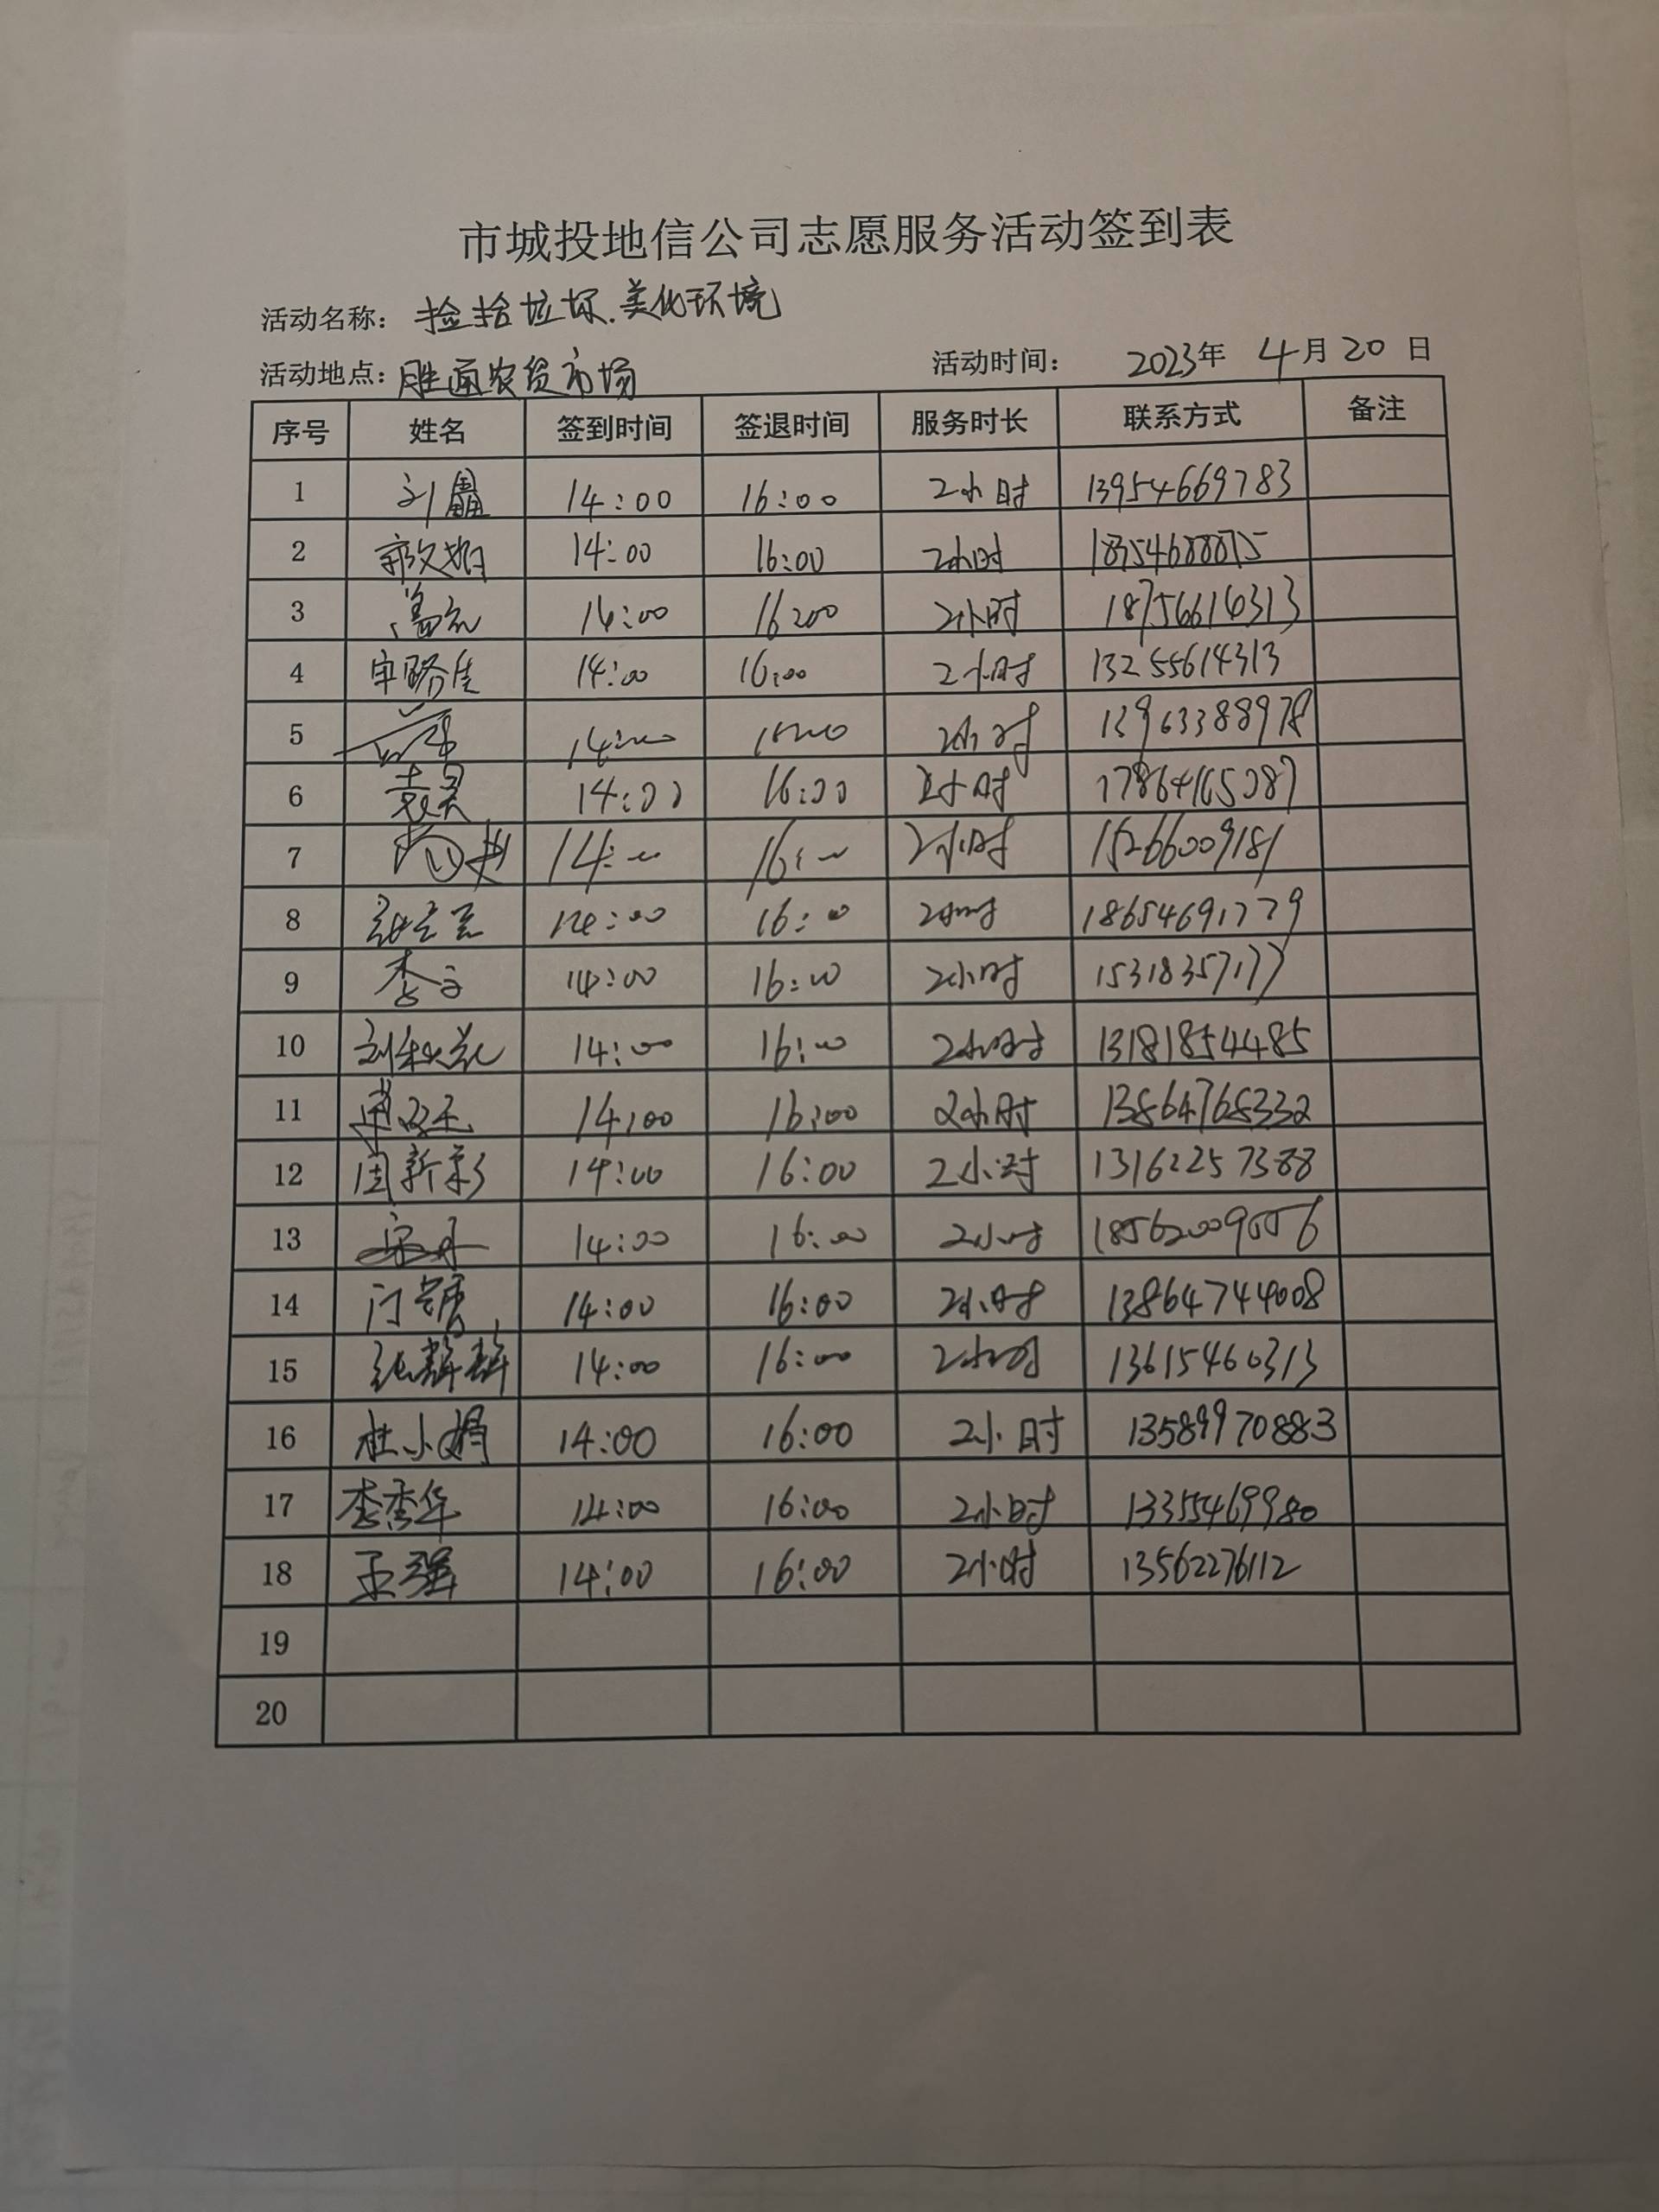 市城投地信公司志愿服务活动签到表
活动名称: 捡拾垃圾.美化环境
活动地点: 胜通农贸市场 活动时间: 2023年 4月20日
序号 姓名 签到时间 签退时间 服务时长 联系方式 备注
1 刘 14:00 16:00 2小时 13954669783
2 郭文娟 14:00 16:00 2小时 18354688875
3 14:00 16:00 2小时 18756614313
4 14:00 16:00 2小时 13255614313
5 14:00 2小时 13963388978
6 袁昊 14:00 16:00 2小时 17864165087
7 14:00 16:00 2小时 15266009181
8 14:00 16:00 2小时 18654691779
9 李 14:00 16:00 2小时 15318357177
10 刘 14:00 16:00 2小时 13181854485
11 14:00 16:00 2小时 13864768332
12 周新彩 14:00 16:00 2小时 13162257388
13 宋丹 14:00 16:00 2小时
14 门 14:00 16:00 2小时 13864744008
15 张群群 14:00 16:00 2小时 13615460313
16 杜小娟 14:00 16:00 2小时 13589970883
17 李秀华 14:00 16:00 2小时 13355469980
18 王强 14:00 16:00 2小时 13562276112
19
20